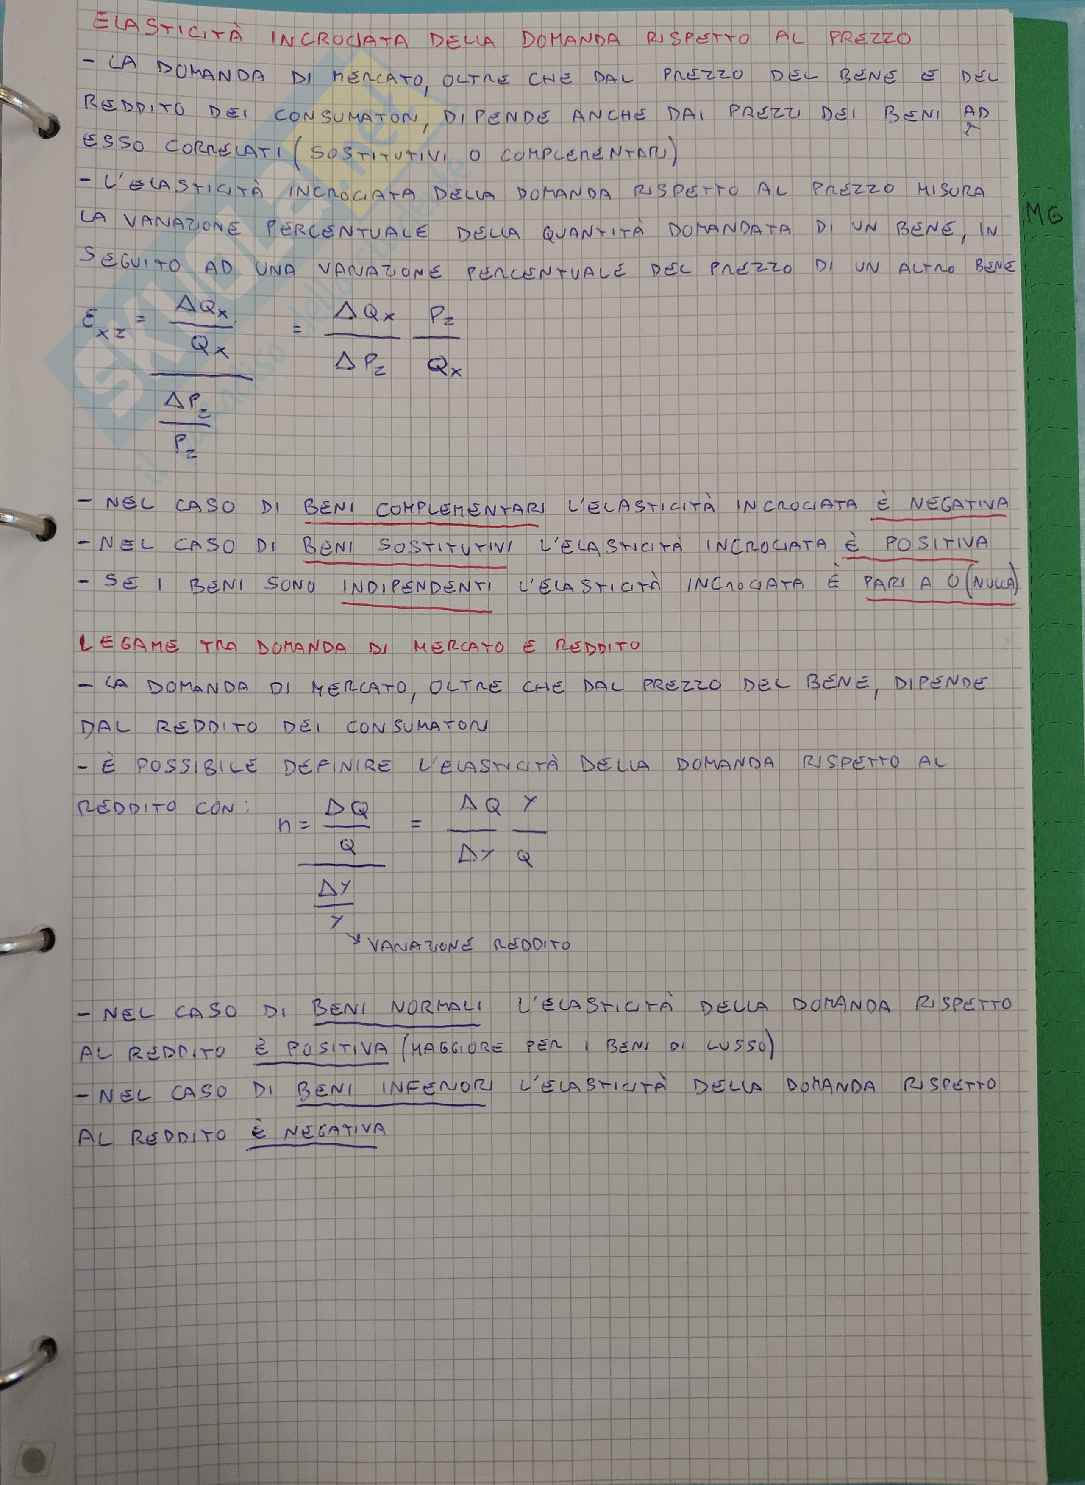 ELASTICITÀ INCROCIATA DELLA DOMANDA RISPETTO AL PREZZO
- LA DOMANDA DI MERCATO, OLTRE CHE DAL PREZZO DEL BENE E DEL
REDDITO DEI CONSUMATORI, DIPENDE ANCHE DAI PREZZI DEI BENI AD
ESSO CORRELATI (SOSTITUTIVI O COMPLEMENTARI)
- L'ELASTICITÀ INCROCIATA DELLA DOMANDA RISPETTO AL PREZZO MISURA
LA VARIAZIONE PERCENTUALE DELLA QUANTITÀ DOMANDATA DI UN BENE, IN
SEGUITO AD UNA VARIAZIONE PERCENTUALE DEL PREZZO DI UN ALTRO BENE
MG
SKUOLA.net
E xz = ΔQx/Qx / ΔPz/Pz = ΔQx/ΔPz Pz/Qx
- NEL CASO DI BENI COMPLEMENTARI L'ELASTICITÀ INCROCIATA È NEGATIVA
- NEL CASO DI BENI SOSTITUTIVI L'ELASTICITÀ INCROCIATA È POSITIVA
- SE I BENI SONO INDIPENDENTI L'ELASTICITÀ INCROCIATA È PARI A 0 (NULLA)
LEGAME TRA DOMANDA DI MERCATO E REDDITO
- LA DOMANDA DI MERCATO, OLTRE CHE DAL PREZZO DEL BENE, DIPENDE
DAL REDDITO DEI CONSUMATORI
- È POSSIBILE DEFINIRE L'ELASTICITÀ DELLA DOMANDA RISPETTO AL
REDDITO CON: n = ΔQ/Q / ΔY/Y = ΔQ/ΔY Y/Q
VARIAZIONE REDDITO
- NEL CASO DI BENI NORMALI L'ELASTICITÀ DELLA DOMANDA RISPETTO
AL REDDITO È POSITIVA (MAGGIORE PER I BENI DI LUSSO)
- NEL CASO DI BENI INFERIORI L'ELASTICITÀ DELLA DOMANDA RISPETTO
AL REDDITO È NEGATIVA